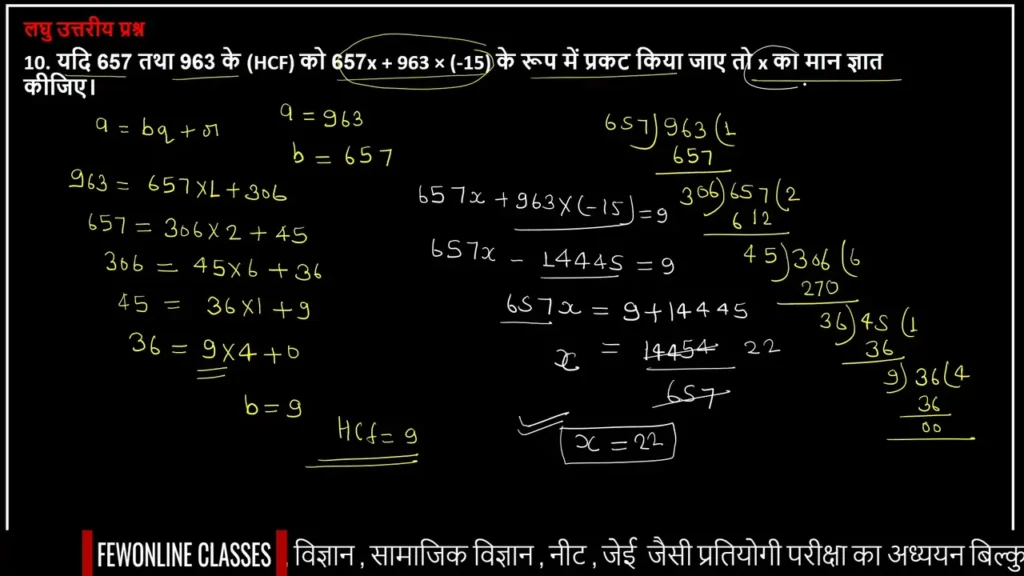 लघु उत्तरीय प्रश्न
10. यदि 657 तथा 963 के (HCF) को 657x + 963 × (-15) के रूप में प्रकट किया जाए तो x का मान ज्ञात
कीजिए।
a = bq + r
963 = 657×1+306
657 = 306×2+45
306 = 45×6+36
45 = 36×1+9
36 = 9×4+0
b=9
HCf= 9
a = 963
b = 657
657x+963×(-15)=9
657x - 14445 = 9
657x = 9+14445
x = 14454 22
657
x = 22
657)963(1
657
306)657(2
612
45)306(6
270
36)45(1
36
9)36(4
36
00
FEWONLINE CLASSES , विज्ञान , सामाजिक विज्ञान , नीट , जेई जैसी प्रतियोगी परीक्षा का अध्ययन बिल्कु